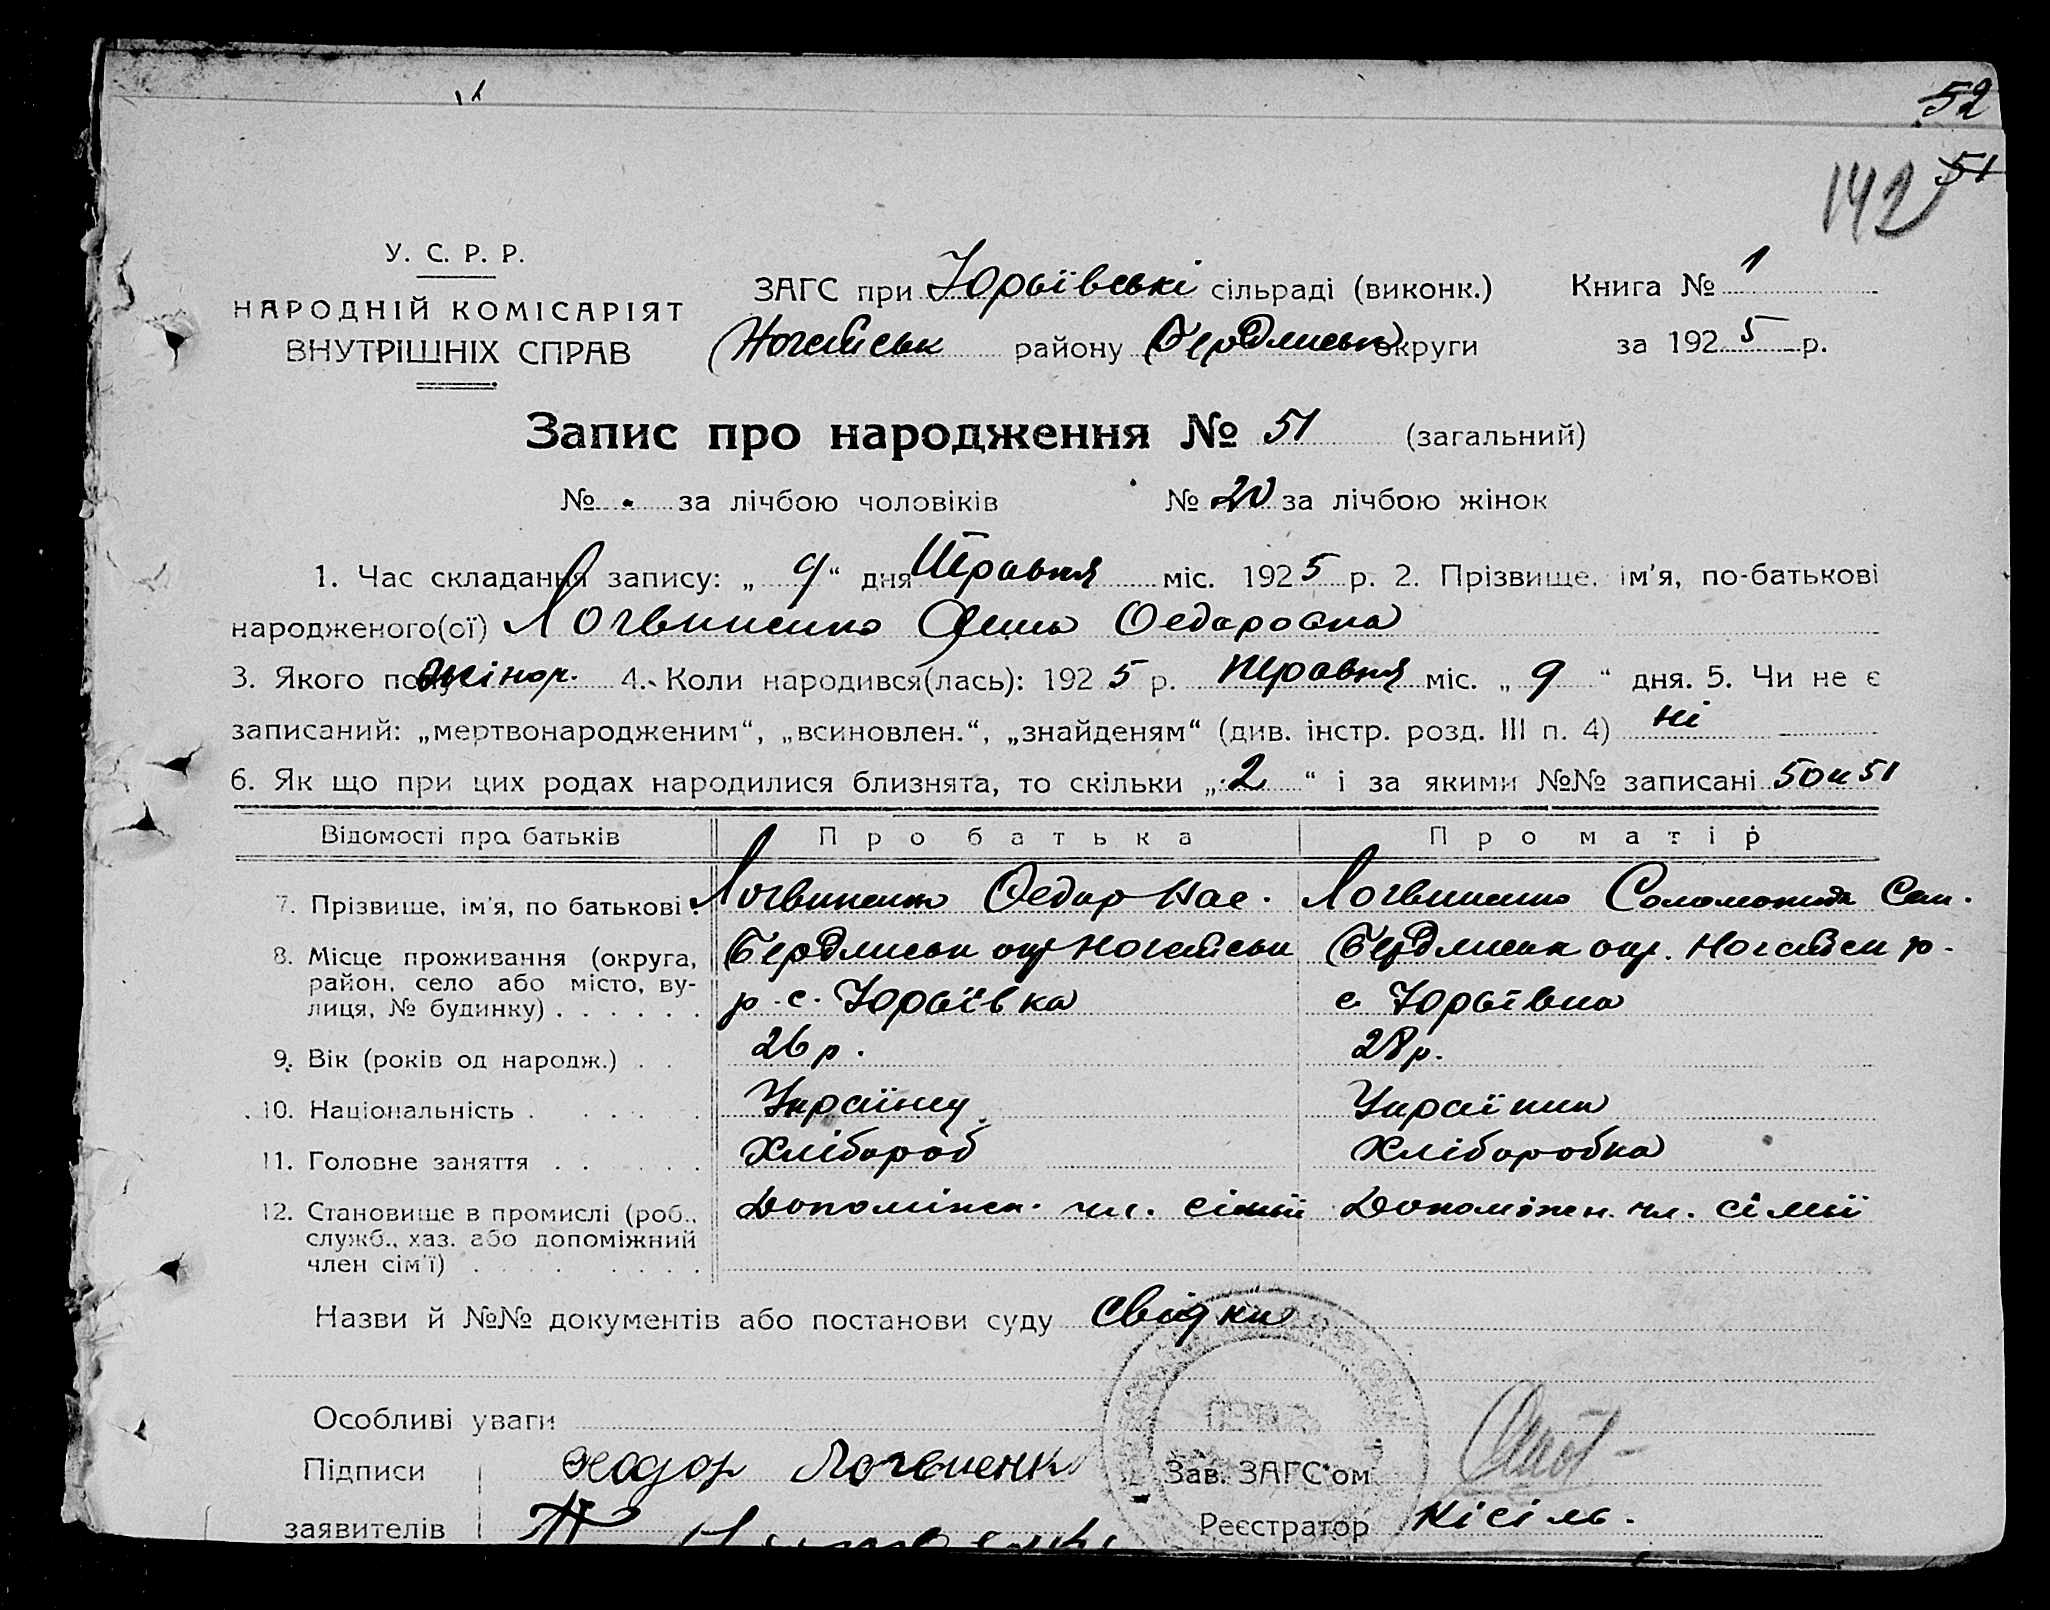 52
51
142
У. С. Р. Р.
НАРОДНІЙ КОМІСАРІЯТ
ВНУТРІШНІХ СПРАВ
ЗАГС при Юрьївські сільраді (виконк.) Книга № 1
Ногайськ району Бердянськ округи за 1925 р.
Запис про народження № 51 (загальний)
№ за лічбою чоловіків № 20 за лічбою жінок
1. Час складання запису: „ 9 “ дня Травня міс. 1925 р. 2. Прізвище, ім'я, по-батькові
народженого(ої) Логвиненко Федоровна
3. Якого полу жіноч. 4. Коли народився(лась): 1925 р. Травня міс. „ 9 “ дня. 5. Чи не є
записаний: „мертвонародженим“, „всиновлен.“, „знайденям“ (див. інстр. розд. III п. 4) ні
6. Як що при цих родах народилися близнята, то скільки „ 2 “ і за якими №№ записані 50 и 51
Відомості про батьків Про батька Про матір
7. Прізвище, ім'я, по батькові. Логвиненко Федор Нас. Логвиненко Соломонида Сем.
8. Місце проживання (округа, Бердянськ окр Ногайськ Бердянськ окр. Ногайськ р.
район, село або місто, ву- р. с. Юрьївка с. Юрьївка
лиця, № будинку) . . . . . .
9. Вік (років од народж.) . . 26 р. 28 р.
10. Національність . . . . . Українц Українка
11. Головне заняття . . . . . Хлібороб Хліборобка
12. Становище в промислі (роб., Допоміжн. чл. сімьї Допоможн. чл. сімьї
служб., хаз. або допоміжний
член сім'ї) . . . . . . . .
Назви й №№ документів або постанови суду свідки
Особливі уваги
Підписи Феодор Логвиенк Зав. ЗАГС'ом
заявителів Реєстратор Кісіль.